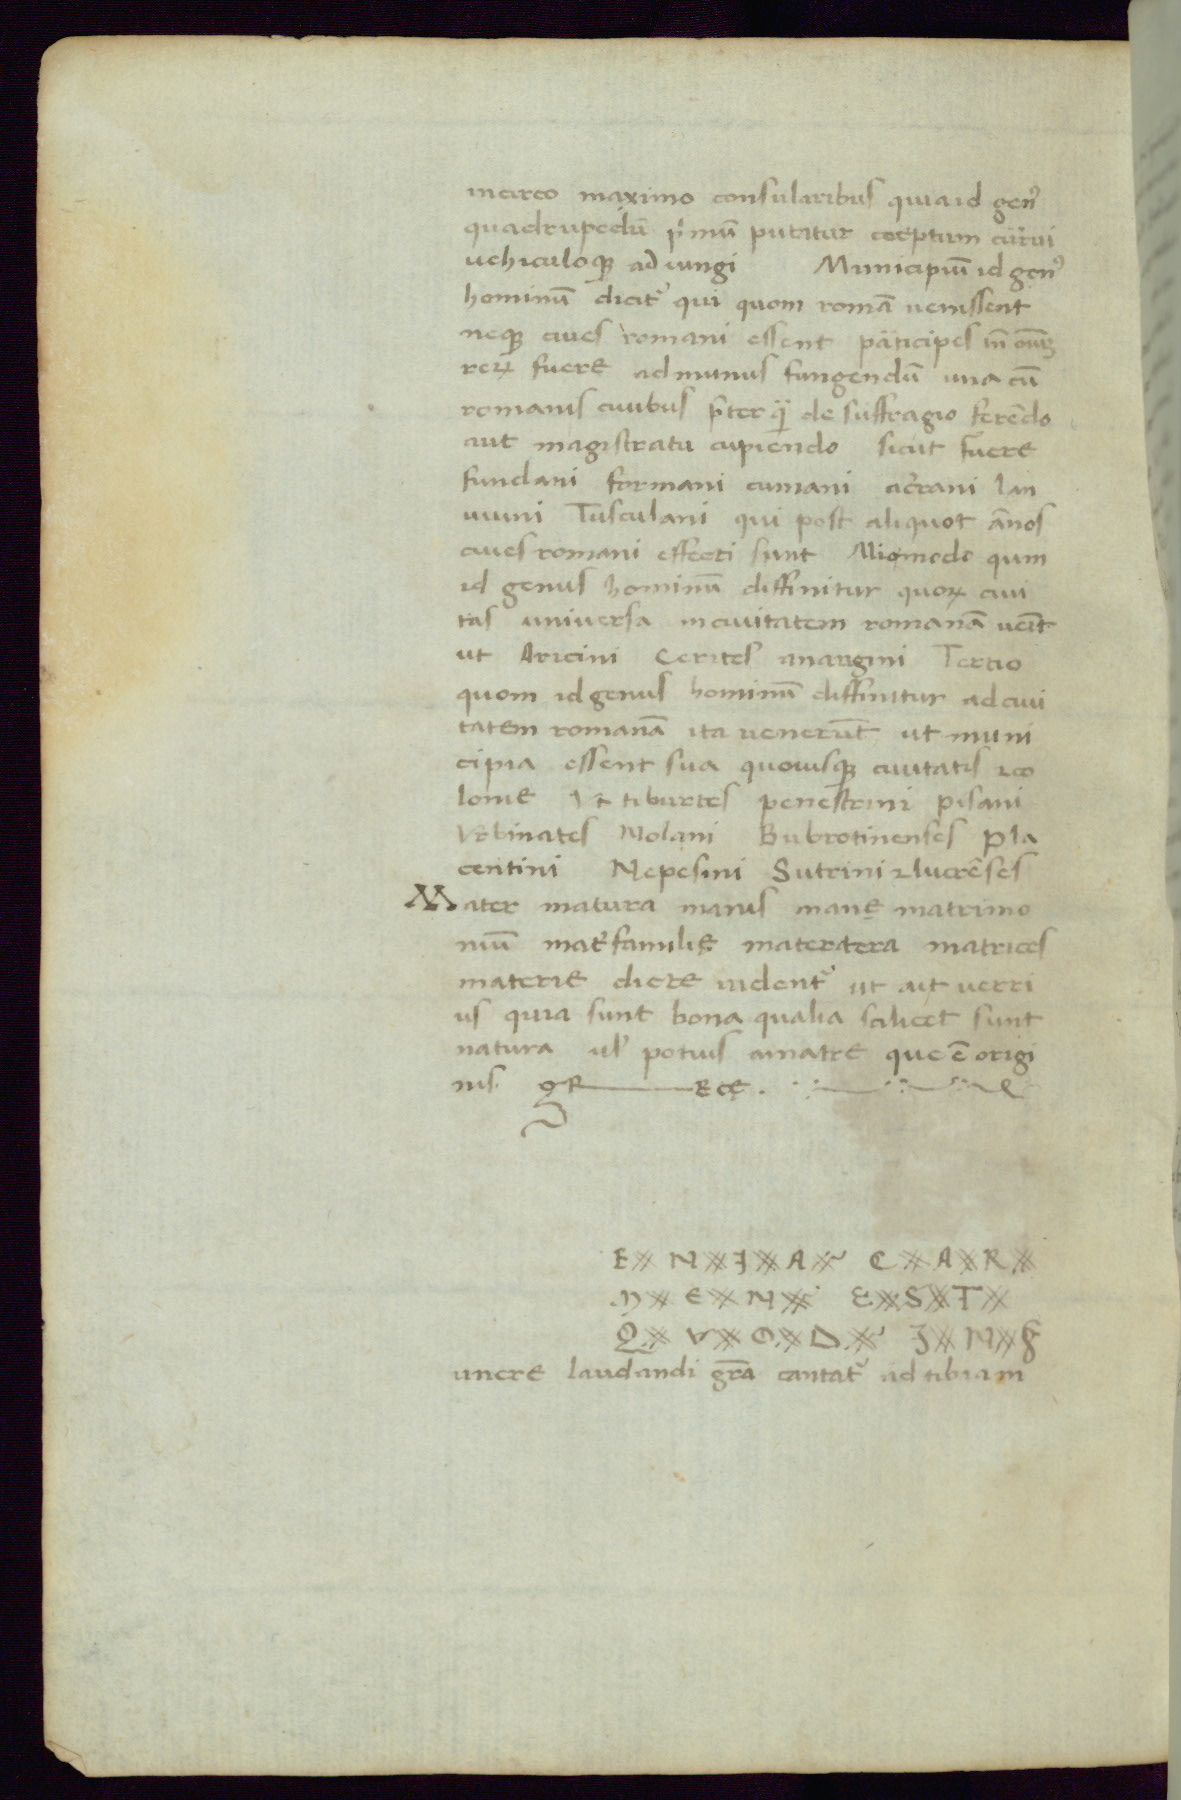 incirco maximo consularibus quia id gen᾽
quadrupedū p̄mū putatur coeptum cur̄ui
uehiculoqꝫ ad iungi Municipiū id gen᾽
hominū dicit᾽ qui quom romā uenissent
neqꝫ ciues romani essent pāticipes in̄ om̄
reꝝ fuere ad munus fungendū una cū
romanis ciuibus p̄ter q̄ de suffragio ferēdo
aut magistratu cupiendo sicut fuere
fundani formani cumani acerani lan
uuini Tusculani qui post aliquot ānos
ciues romani effecti sunt Aliomodo qum
id genus hominū diffinitur quoꝝ ciui
tas universa inciuitatem romanā ueīt
ut Aricini Cerites anangini Tertio
quom id genus hominū diffinitur ad ciui
tatem romanā ita uenerūt ut muni
cipia essent sua quoiusqꝫ ciuitatis ⁊co
lonie Ut tiburtes penestrini pisani
Urbinates Nolani Bubrotinenses Pla
centini Nepesini Sutrini ⁊lucrēses
Mater matura manis mane matrimo
niū mat᾽familię matertera matrices
materie dicte uident᾽ ut ait uerri
us quia sunt bona qualia scilicet sunt
natura ul᾽ potius amatre que ē origi
nis. gR Ecę.
E N I A C A R
M E N E S T
Q V O D I N F
unere laudandi gr̄a cantat᾽ ad tibiam